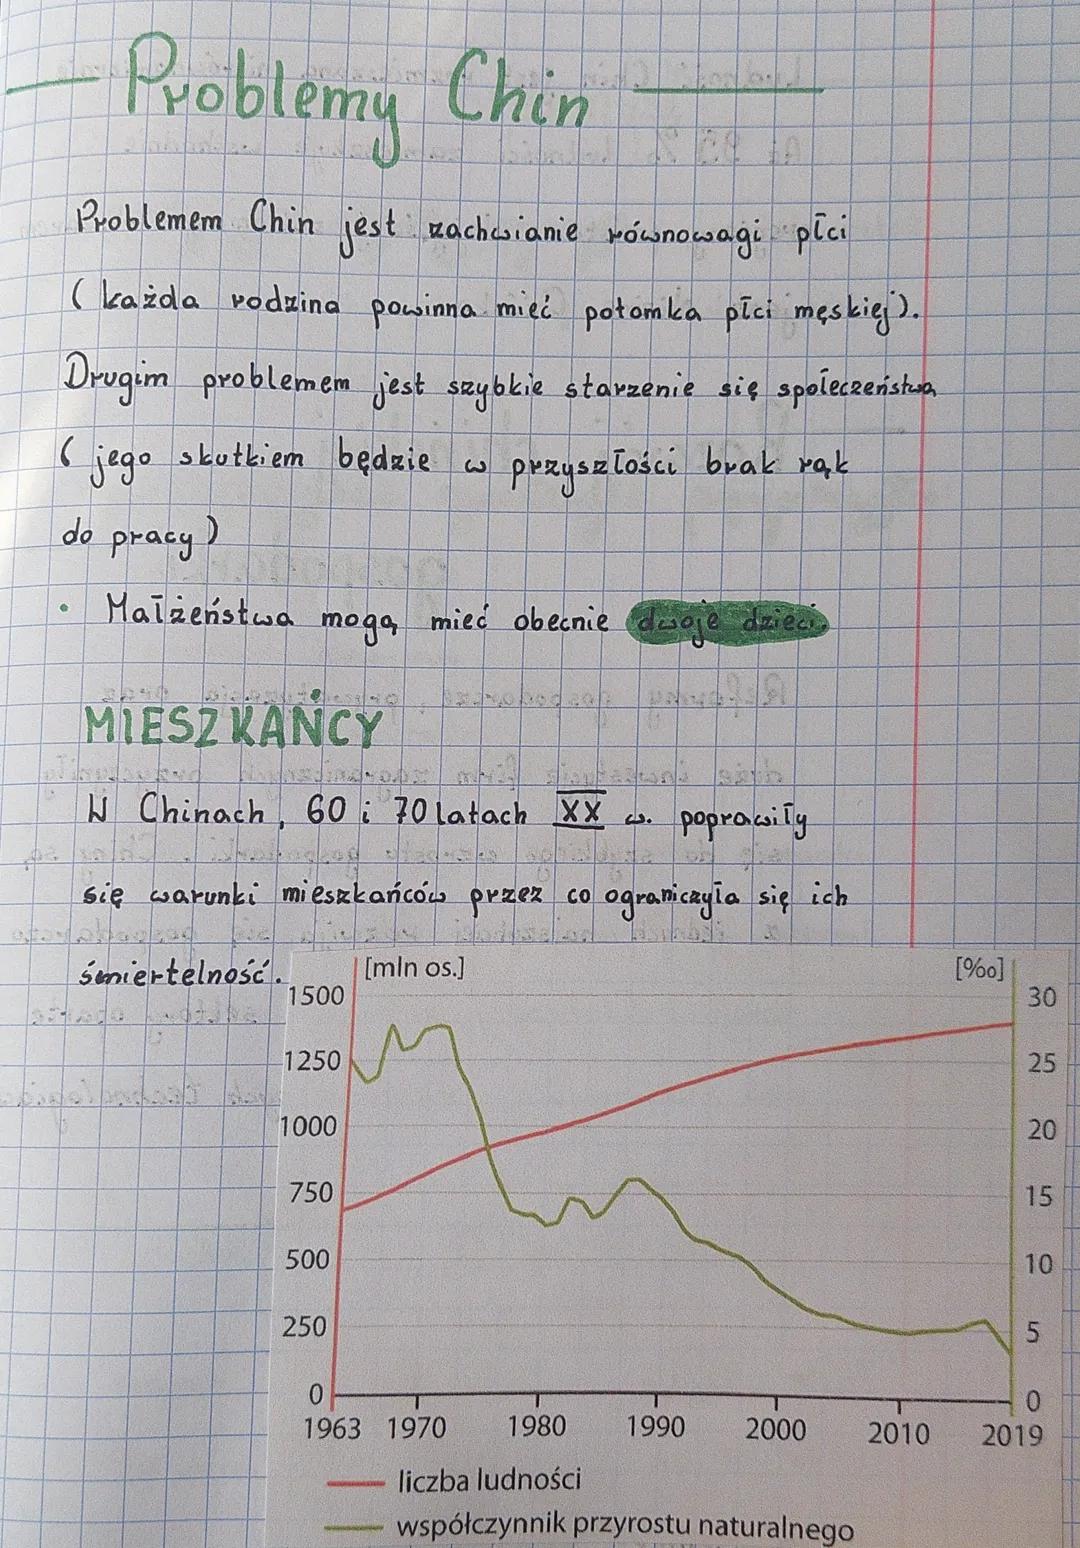 Problemy Chin
Problemem Chin jest zachwianie równowagi płci
(każda rodzina powinna mieć potomka płci męskiej).
Drugim problemem jest szybkie starzenie się społeczeństwa
(jego skutkiem będzie w przyszłości brak rąk
do pracy)
• Małżeństwa mogą mieć obecnie dwoje dzieci.
MIESZKAŃCY
W Chinach, 60 i 70 latach XX w. poprawiły
się warunki mieszkańców przez co ograniczyła się ich
śmiertelność.
[mln os.] [‰]
1500 30
1250 25
1000 20
750 15
500 10
250 5
0 0
1963 1970 1980 1990 2000 2010 2019
liczba ludności
współczynnik przyrostu naturalnego